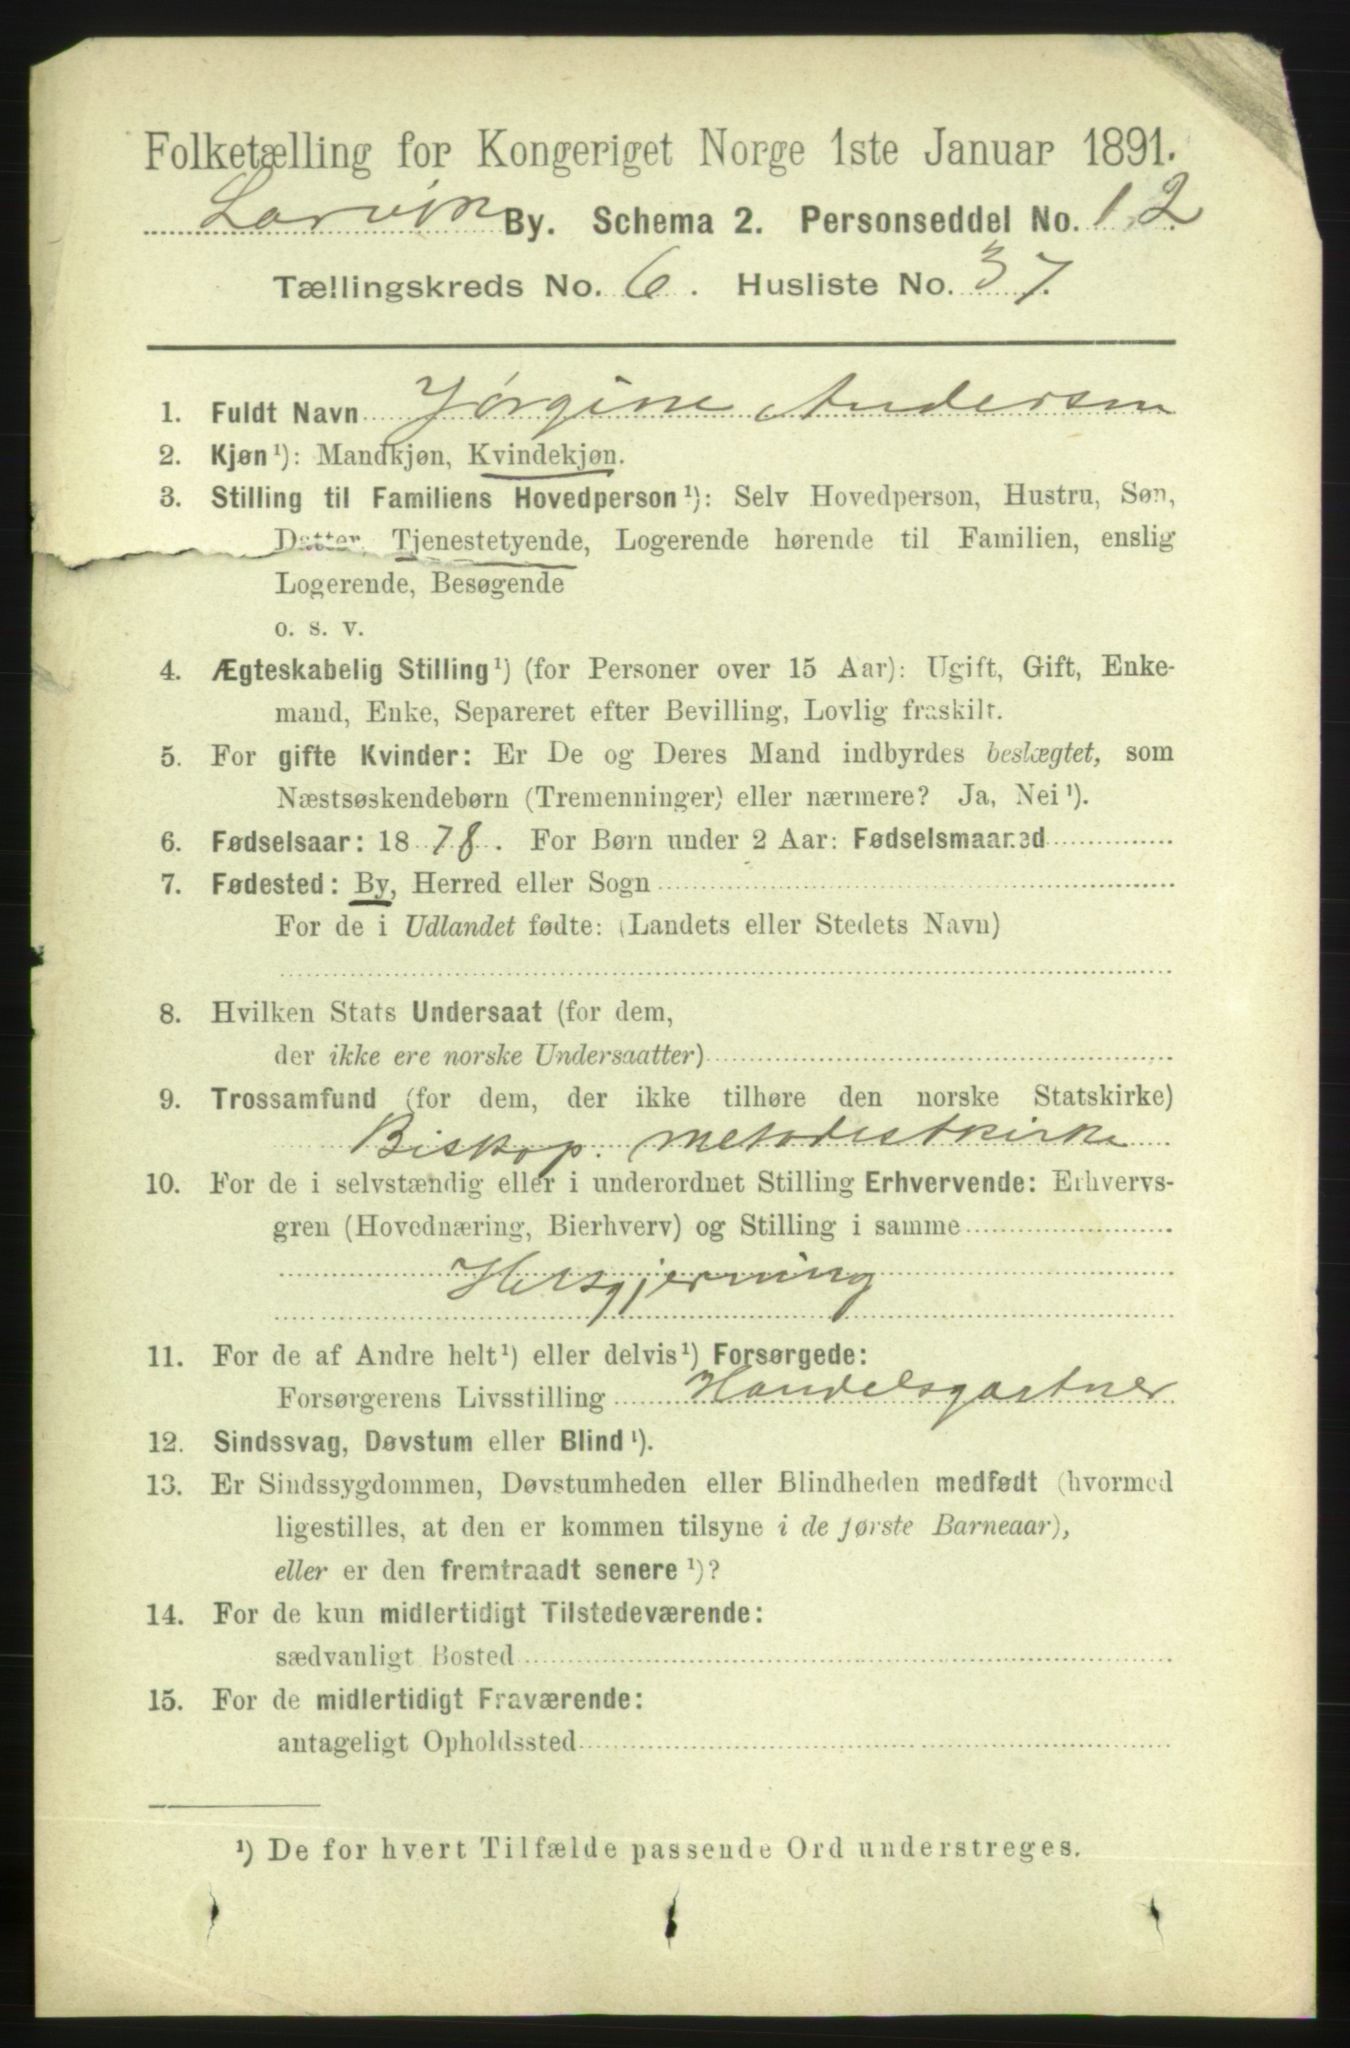 Folketælling for Kongeriget Norge 1ste Januar 1891.
Larvik By. Schema 2. Personseddel No. 12
Tællingskreds No. 6. Husliste No. 37.
1. Fuldt Navn Jørgine Andersen
2. Kjøn ¹): Mandkjøn, Kvindekjøn.
3. Stilling til Familiens Hovedperson ¹): Selv Hovedperson, Hustru, Søn,
Datter, Tjenestetyende, Logerende hørende til Familien, enslig
Logerende, Besøgende
o. s. v.
4. Ægteskabelig Stilling ¹) (for Personer over 15 Aar): Ugift, Gift, Enke-
mand, Enke, Separeret efter Bevilling, Lovlig fraskilt.
5. For gifte Kvinder: Er De og Deres Mand indbyrdes beslægtet, som
Næstsøskendebørn (Tremenninger) eller nærmere? Ja, Nei ¹).
6. Fødselsaar: 1878. For Børn under 2 Aar: Fødselsmaaned
7. Fødested: By, Herred eller Sogn
For de i Udlandet fødte: (Landets eller Stedets Navn)
8. Hvilken Stats Undersaat (for dem,
der ikke ere norske Undersaatter)
9. Trossamfund (for dem, der ikke tilhøre den norske Statskirke)
Biskop. metodistkirke
10. For de i selvstændig eller i underordnet Stilling Erhvervende: Erhvervs-
gren (Hovednæring, Bierhverv) og Stilling i samme
Husgjerning
11. For de af Andre helt ¹) eller delvis ¹) Forsørgede:
Forsørgerens Livsstilling Handelsgartner
12. Sindssvag, Døvstum eller Blind ¹).
13. Er Sindssygdommen, Døvstumheden eller Blindheden medfødt (hvormed
ligestilles, at den er kommen tilsyne i de første Barneaar),
eller er den fremtraadt senere ¹)?
14. For de kun midlertidigt Tilstedeværende:
sædvanligt Bosted
15. For de midlertidigt Fraværende:
antageligt Opholdssted
¹) De for hvert Tilfælde passende Ord understreges.